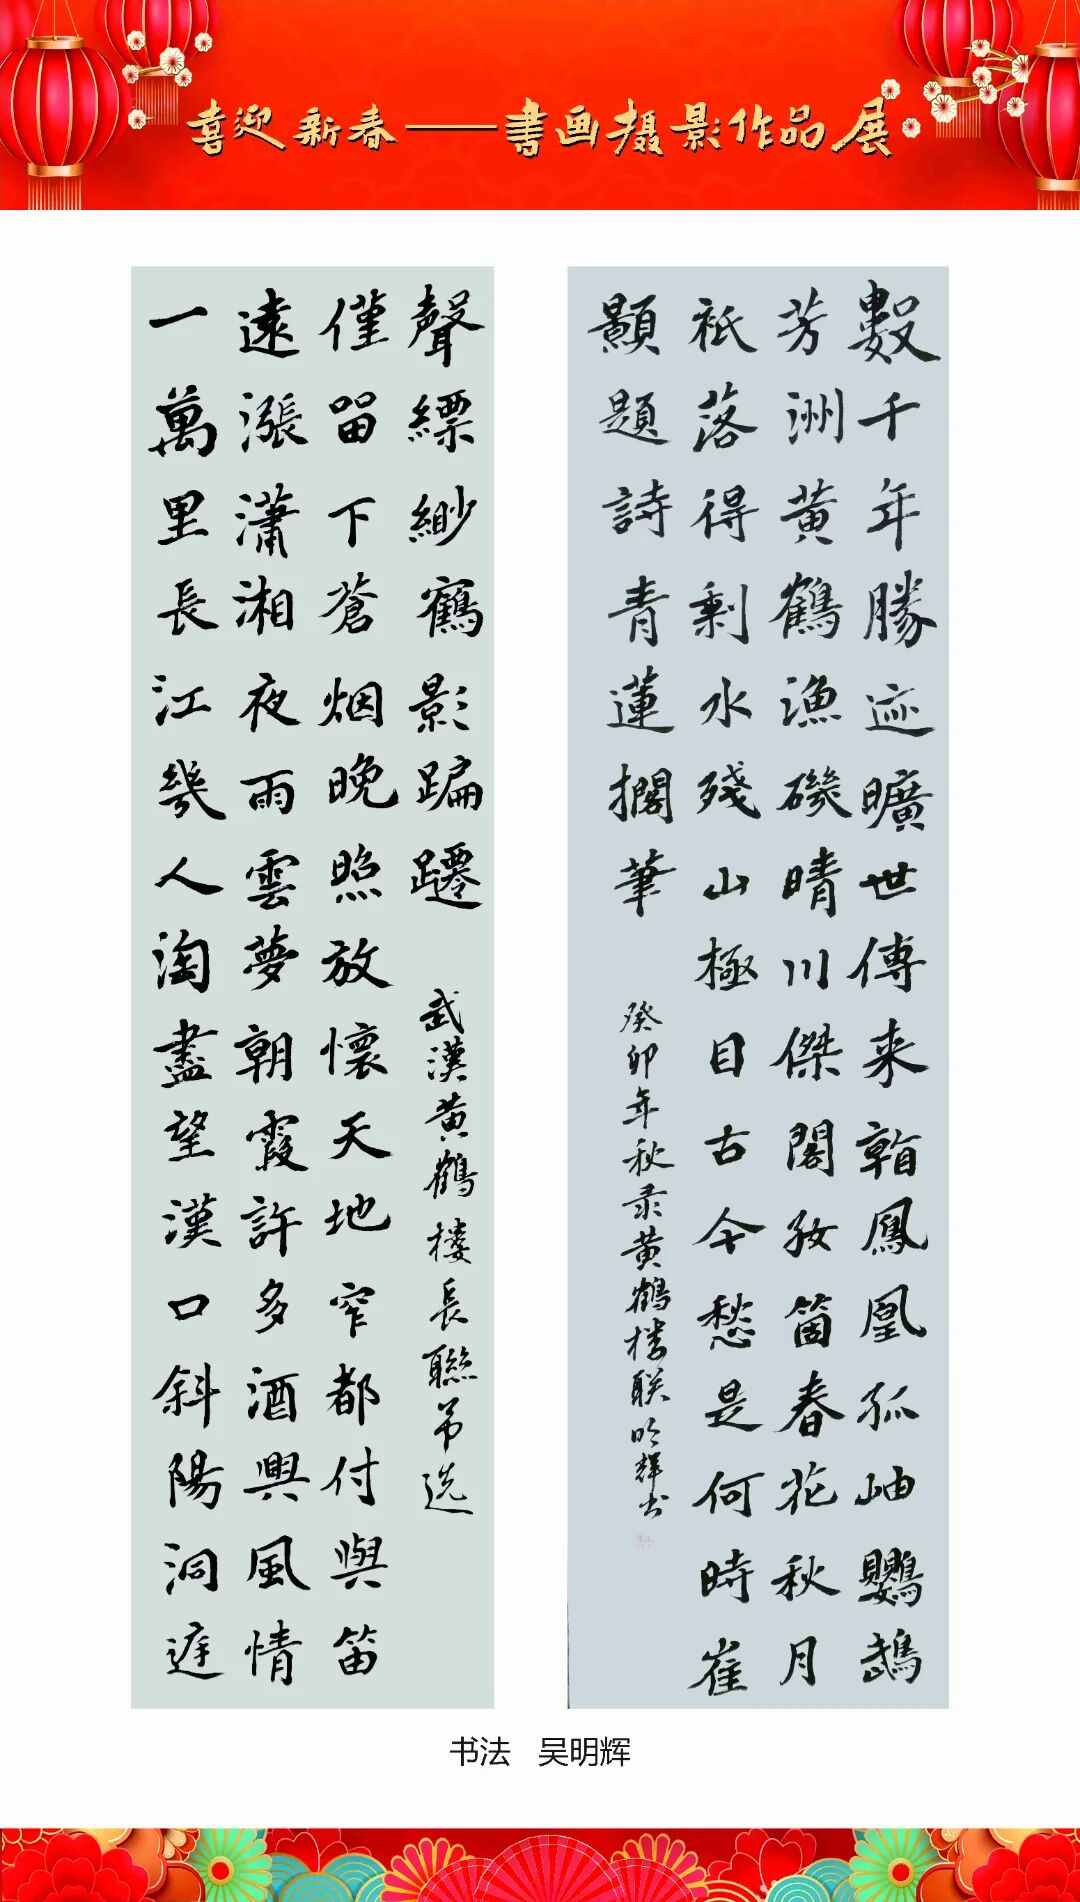 喜迎新春——書画摄影作品展
數千年勝迹曠世傳来看鳳凰孤岫鸚鵡
芳洲黄鶴漁磯晴川傑閣好箇春花秋月
祇落得剩水殘山極目古今愁是何時崔
顥題詩青蓮擱筆
癸卯年秋录黄鶴楼联明辉书
一萬里長江幾人淘盡望漢口斜陽洞庭
遠漲瀟湘夜雨雲夢朝霞許多酒興風情
僅留下蒼烟晚照放懷天地窄都付與笛
聲縹緲鶴影蹁躚
武漢黄鶴樓長聯节选
书法 吴明辉